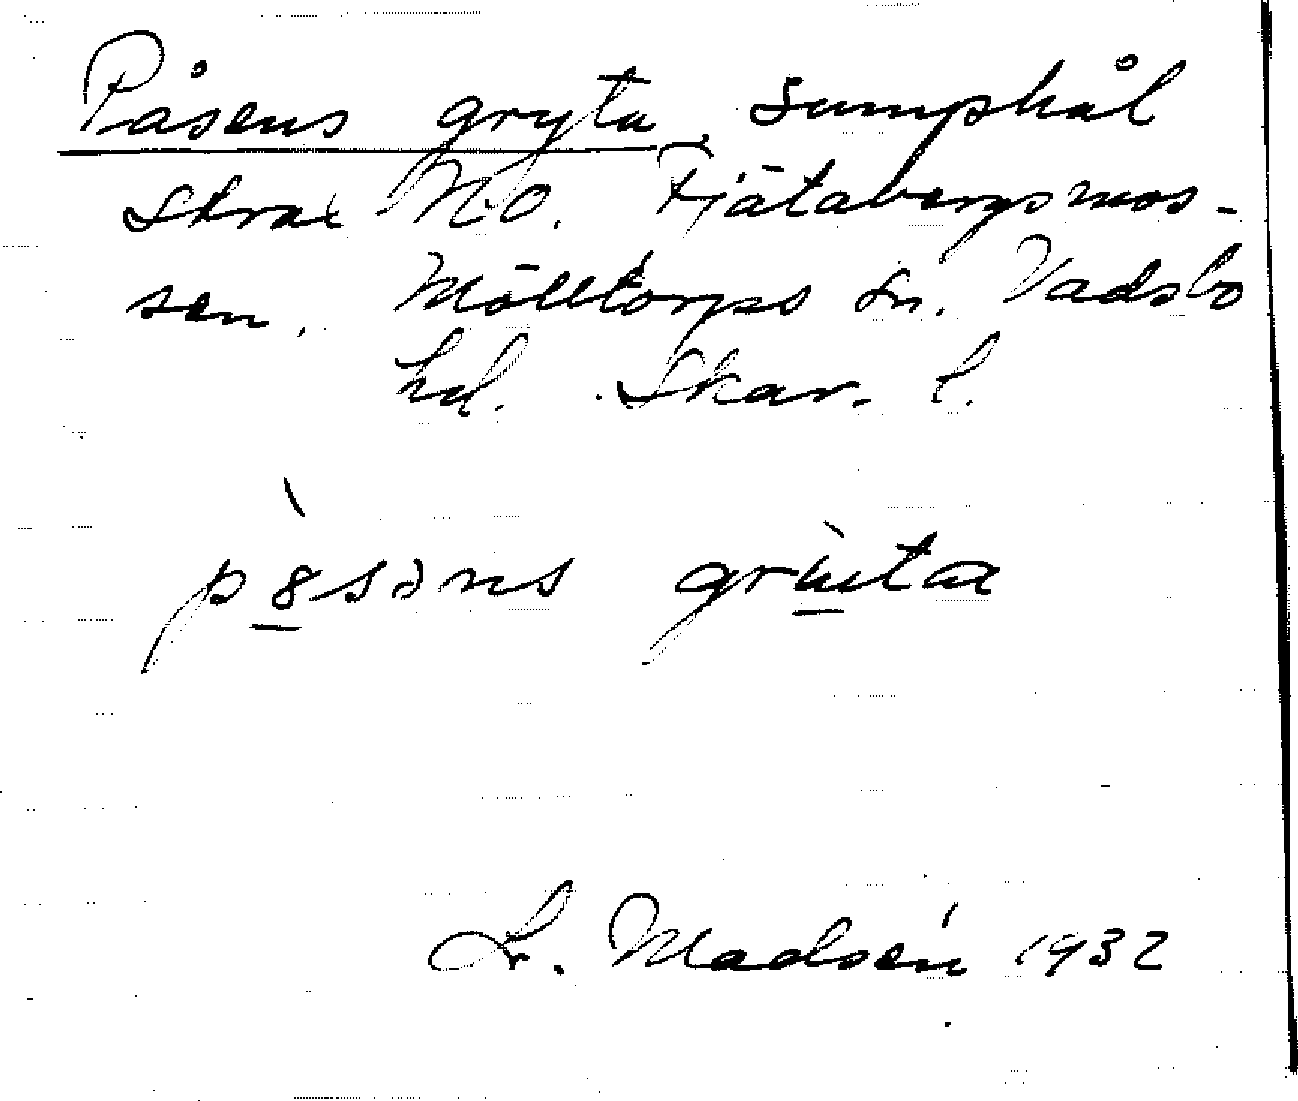 Påsens gryta, Sumphål
strax NO. Fjätabergsmos-
sen. Mölltorps sn. Vadsbo
hd. Skar. l.
p8̲̀səns grùi̲ta
Madsén 1932